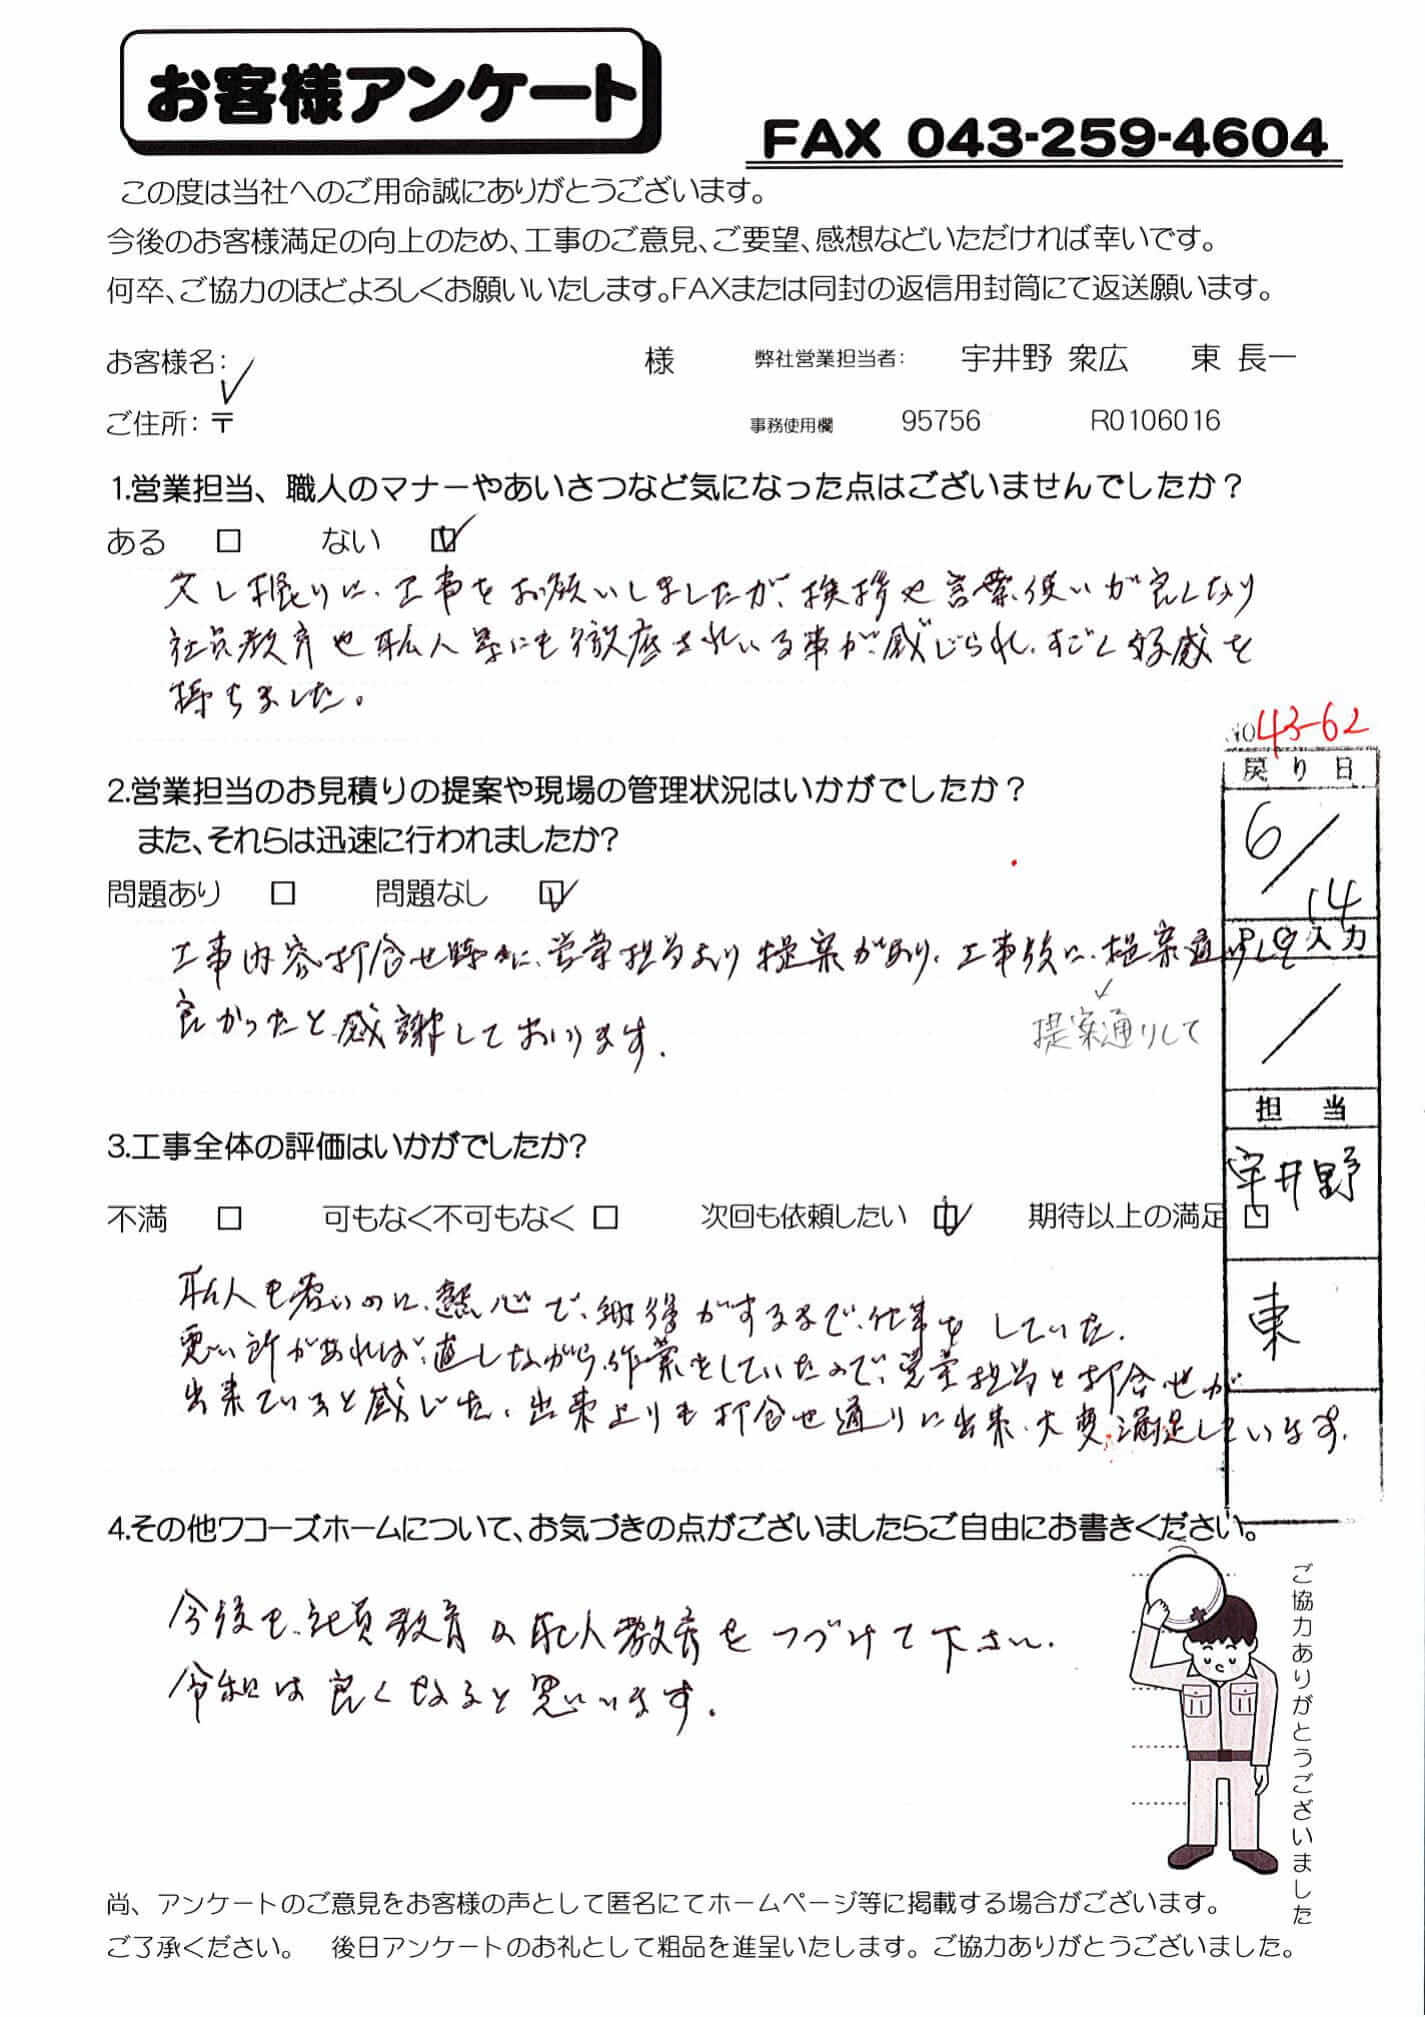 お客様アンケート
FAX 043-259-4604
この度は当社へのご用命誠にありがとうございます。
今後のお客様満足の向上のため、工事のご意見、ご要望、感想などいただければ幸いです。
何卒、ご協力のほどよろしくお願いいたします。FAXまたは同封の返信用封筒にて返送願います。
お客様名: 様 弊社営業担当者: 宇井野 衆広 東 長一
ご住所: 〒 事務使用欄 95756 R0106016
1.営業担当、職人のマナーやあいさつなど気になった点はございませんでしたか？
ある □ ない □
久し振りに、工事をお願いしましたが、挨拶や言葉使いが良くなり
社員教育や職人等にも徹底されいる事が、感じられ、すごく好感を
持ちました。
NO 43-62
戻り日
2.営業担当のお見積りの提案や現場の管理状況はいかがでしたか？
また、それらは迅速に行われましたか?
6/14
問題あり □ 問題なし □
工事内容打合せ時に、営業担当より提案があり、工事後に、提案通りして
ＰＣ入力
良かったと感謝しております。
提案通りして
/
担当
3.工事全体の評価はいかがでしたか?
宇井野
不満 □ 可もなく不可もなく □ 次回も依頼したい □ 期待以上の満足 □
職人も若いのに、熱心で、納得がするまで、仕事をしていた。
東
悪い所があれば、直しながら、作業をしていたので、営業担当と打合せが
出来ていると感じた。出来上りも打合せ通りに出来、大変満足しています。
4.その他ワコーズホームについて、お気づきの点がございましたらご自由にお書きください。
今後も、社員教育や職人教育をつづけて下さい。
令和は良くなると思います。
ご協力ありがとうございました
尚、アンケートのご意見をお客様の声として匿名にてホームページ等に掲載する場合がございます。
ご了承ください。 後日アンケートのお礼として粗品を進呈いたします。ご協力ありがとうございました。